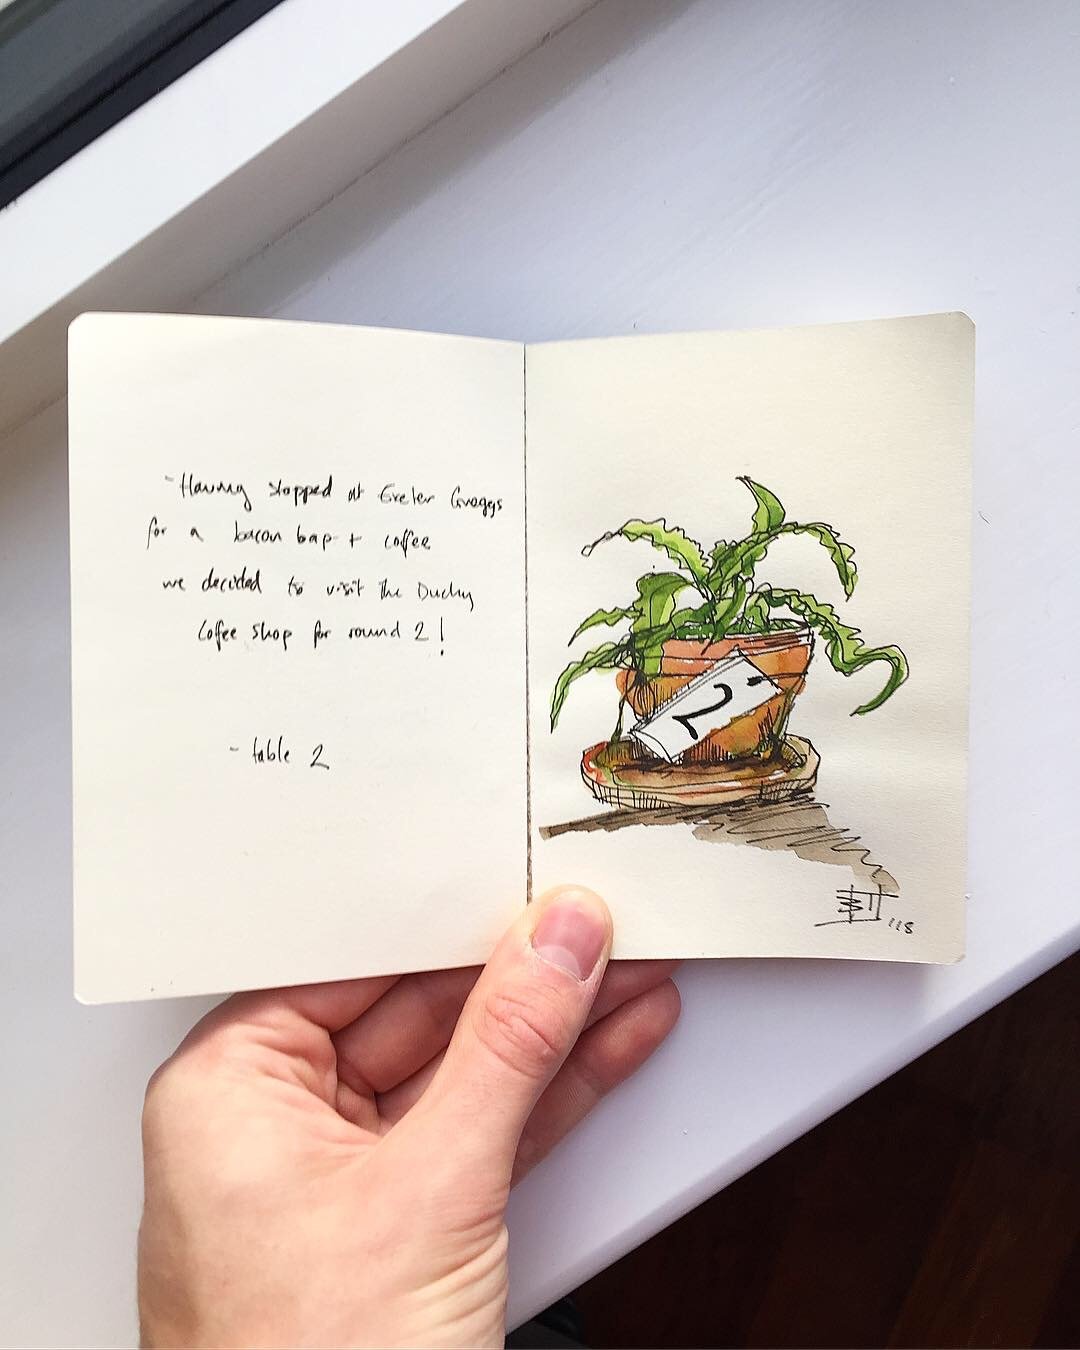 - Having stopped at Exeter Greggs
for a bacon bap + coffee
we decided to visit the Duchy
Cofee Shop for round 2!
- table 2
2
'18